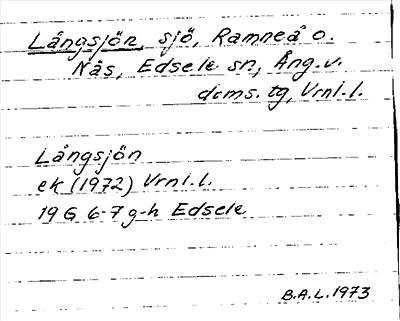 Långsjön, sjö, Ramneå o.
Näs, Edsele sn, Ång.v.
doms. tg, Vrnl.l.
Långsjön
ek (1972) Vrnl.l.
19 G 6-7 g-h Edsele
B.A.L. 1973